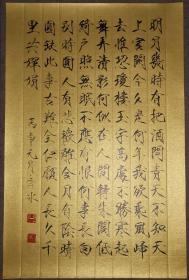 明月幾時有把酒問青天不知天
上宮闕今夕是何年我欲乘風歸
去惟恐瓊樓玉宇高處不勝寒起
舞弄清影何似在人間轉朱閣低
綺户照無眠不應有恨何事長向
別時圓人有悲歡離合月有陰晴
圓缺此事古難全但願人長久千
里共嬋娟